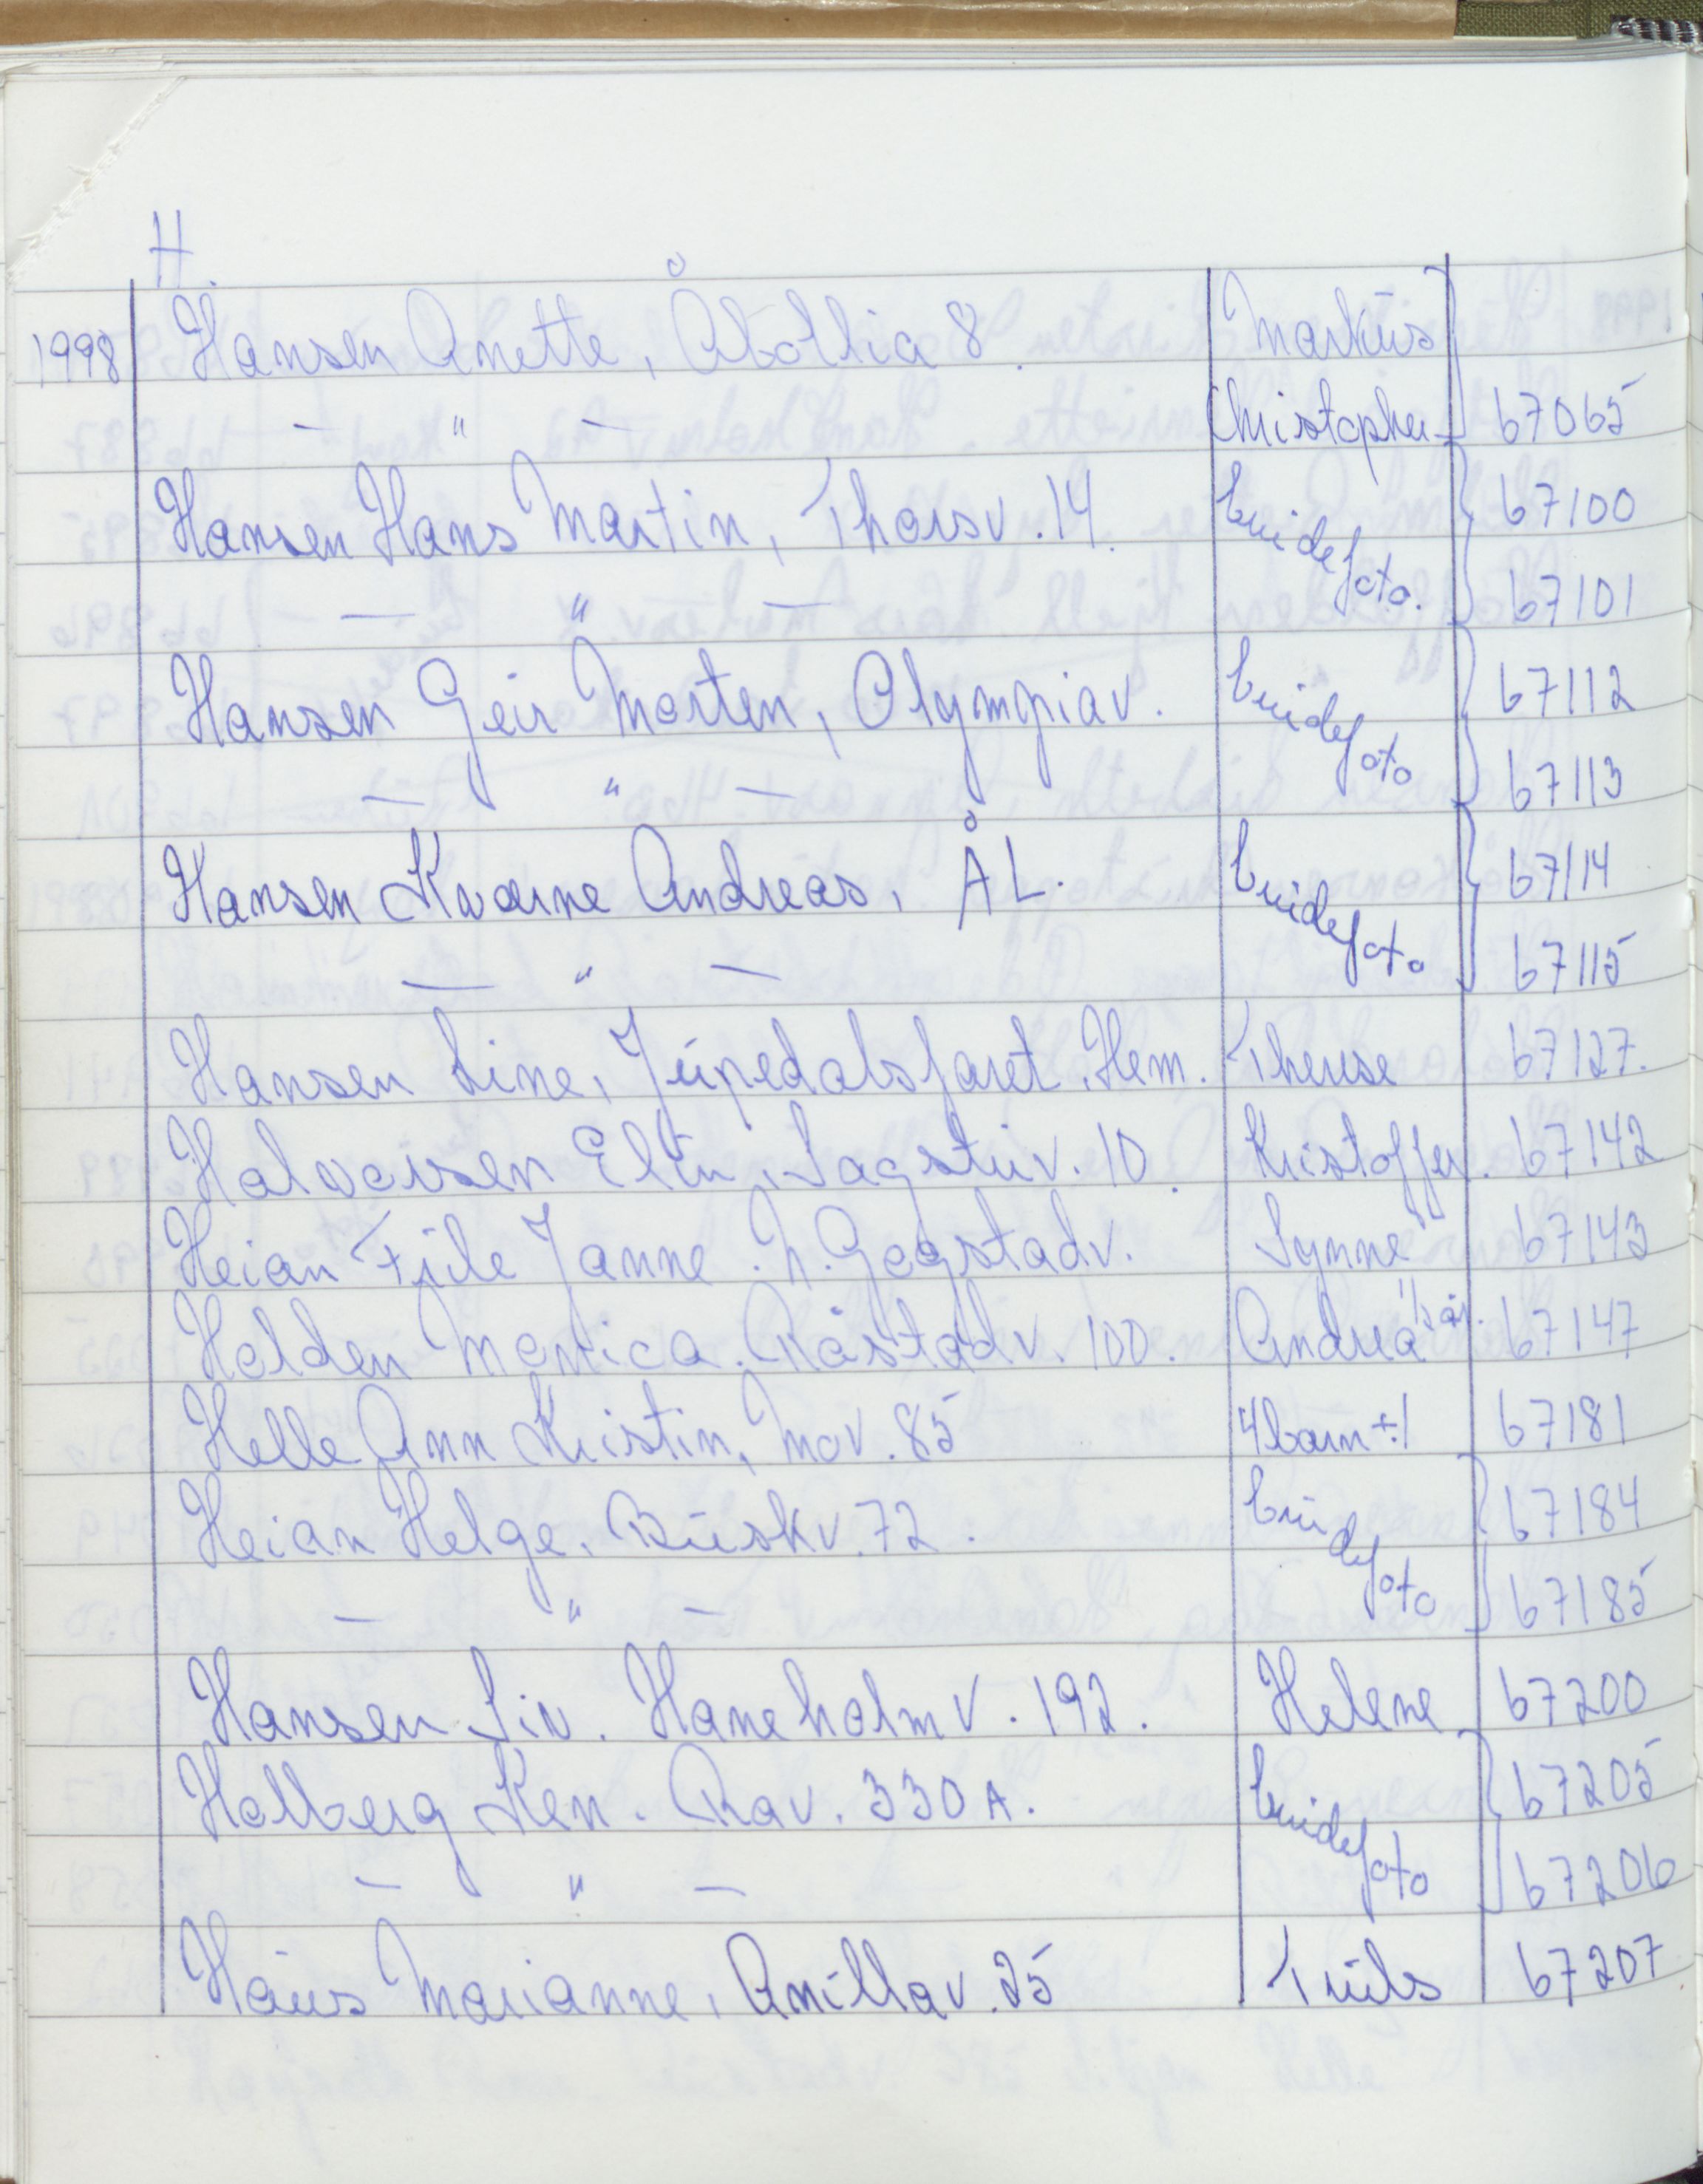 H.
1998 Hansen Anette, Åbollia 8. Markus
— " — Christopher 67065
Hansen Hans Martin, Thorsv. 14. brudefoto. 67100
— " — 67101
Hansen Geir Morten, Olympiav. brudefoto 67112
— " — 67113
Hansen Kværne Andreas, ÅL. brudefoto 67114
— " — 67115
Hansen Line, Jupedalsfaret, Hem. Therese 67127.
Halvorsen Elin, Sagstuv. 10. Kristoffer. 67142
Heian Fjile Janne. N. Gogstadv. Synne 67143
Holden Monica. Råstadv. 100. Andrea 1/2 år. 67147
Helle Ann Kristin, Mov. 85 4 barn + 1 67181
Heian Helge, Buskv. 72. brudefoto 67184
— " — 67185
Hansen Siv. Haneholmv. 192. Helene 67200
Holberg Ken. Rav. 330 A. brudefoto 67205
— " — 67206
Haus Marianne, Amillav. 25 Truls 67207